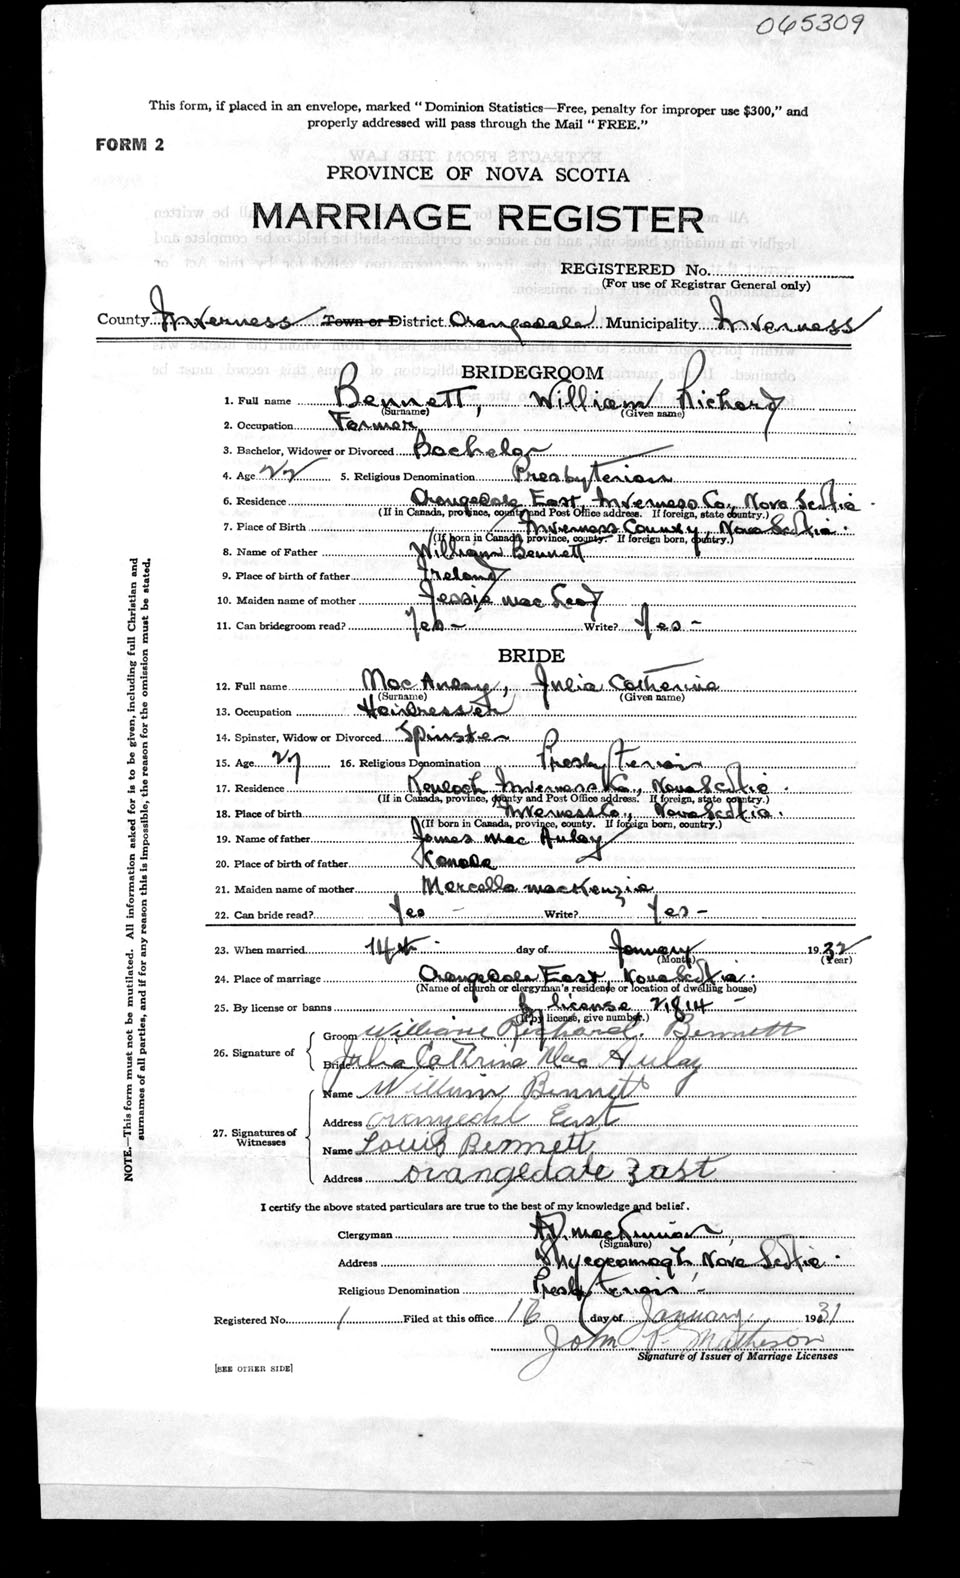 065309
This form, if placed in an envelope, marked "Dominion Statistics—Free, penalty for improper use $300," and
properly addressed will pass through the Mail "FREE."
FORM 2
PROVINCE OF NOVA SCOTIA
MARRIAGE REGISTER
REGISTERED No.
(For use of Registrar General only)
County Inverness Town or District Orangedale Municipality Inverness
BRIDEGROOM
1. Full name Bennett, William Richard
(Surname) (Given name)
2. Occupation Farmer
3. Bachelor, Widower or Divorced Bachelor
4. Age 22 5. Religious Denomination Presbyterian
6. Residence Orangedale East, Inverness Co, Nova Scotia
(If in Canada, province, county and Post Office address. If foreign, state country.)
7. Place of Birth Inverness County Nova Scotia
(If born in Canada, province, county. If foreign born, country.)
8. Name of Father William Bennett
9. Place of birth of father Ireland
10. Maiden name of mother Jessie Mac Leod
11. Can bridegroom read? Yes - Write? Yes -
BRIDE
12. Full name Mac Aulay, Julia Catherine
(Surname) (Given name)
13. Occupation Hairdresser
14. Spinster, Widow or Divorced Spinster
15. Age 27 16. Religious Denomination Presbyterian
17. Residence Inverness Co, Nova Scotia
(If in Canada, province, county and Post Office address. If foreign, state country.)
18. Place of birth Inverness Co., Nova Scotia.
(If born in Canada, province, county. If foreign born, country.)
19. Name of father James Mac Aulay
20. Place of birth of father Kanada
21. Maiden name of mother Marcella MacKenzie
22. Can bride read? Yes - Write? Yes -
23. When married 14th day of January 1932
(Month) (Year)
24. Place of marriage Orangedale East, Nova Scotia
(Name of church or clergyman's residence or location of dwelling house)
25. By license or banns by license
(If by license, give number.)
26. Signature of
Groom William Richard. Bennett
Bride Julia Cathrine Mac Aulay
27. Signatures of Witnesses
Name William Bennett
Address Orangedal East
Name Louis Bennett
Address Orangedale East
I certify the above stated particulars are true to the best of my knowledge and belief.
Clergyman A.D. MacKinnon,
(Signature)
Address Whycocomagh, Nova Scotia
Religious Denomination Presbyterian -
Registered No. 1 Filed at this office 16 day of January 1931
John P. Matheson
Signature of Issuer of Marriage Licenses
[SEE OTHER SIDE]
NOTE.—This form must not be mutilated. All information asked for is to be given, including full Christian and
surnames of all parties, and if for any reason this is impossible, the reason for the omission must be stated.